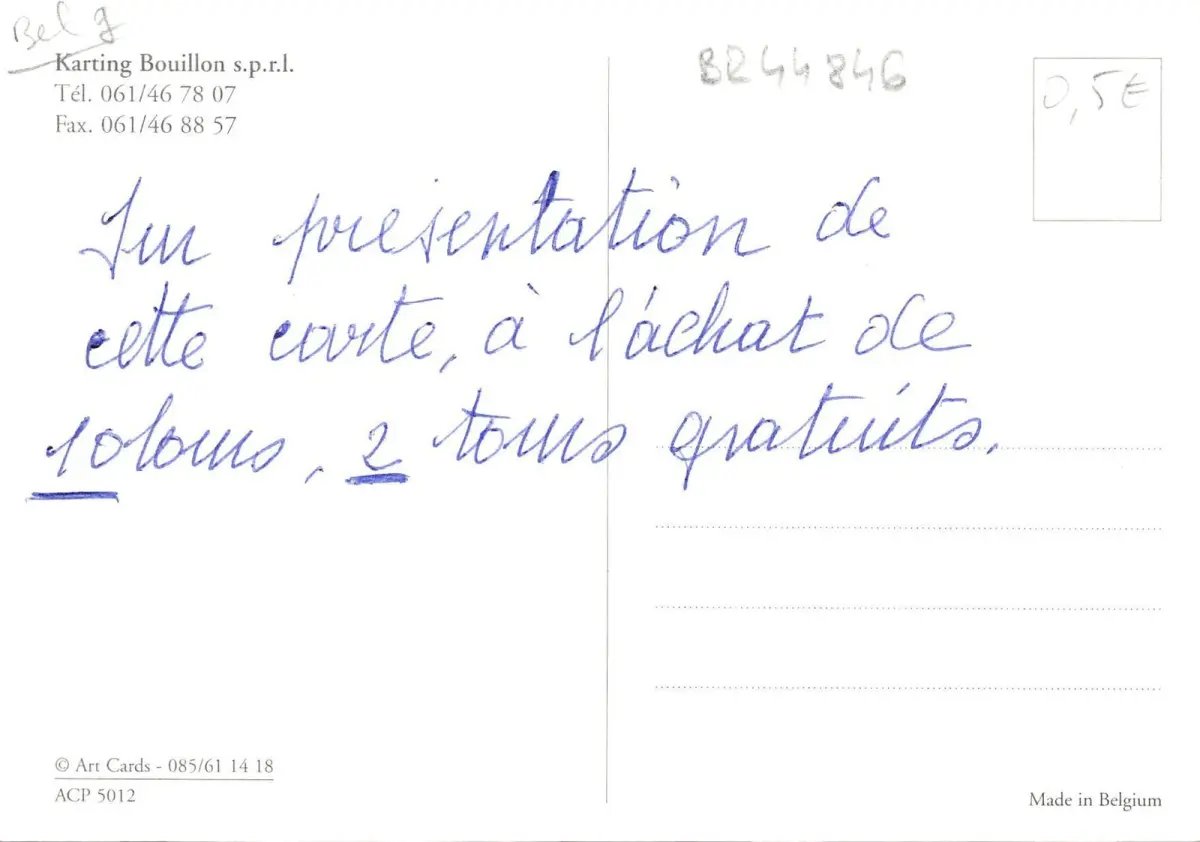 Belg
Karting Bouillon s.p.r.l.
Tél. 061/46 78 07
Fax. 061/46 88 57
BR44846
0,5€
Sur présentation de
cette carte, à l'achat de
10 tours, 2 tours gratuits.
© Art Cards - 085/61 14 18
ACP 5012
Made in Belgium